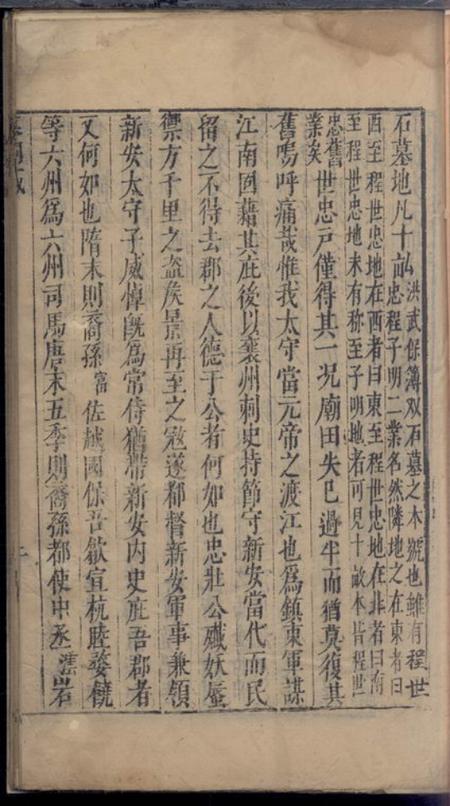 石墓地凡十畝洪武保簿双石墓之本號也雖有程世
忠程子明二業名然隣地之在東者曰
西至程世忠地在西者曰東至程世忠地在北者曰南
至程世忠地未有称至子明地者可見十畝本皆程世
忠舊
業矣世忠戶僅得其一况廟田失已過半而猶莫復其
舊嗚呼痛哉惟我太守當元帝之渡江也爲鎮東軍謀
江南固藉其庇後以襄州刺史持節守新安當代而民
留之不得去郡之人德于公者何如也忠壯公殱妖蜃
禦方千里之盗矦景再至之寇遂都督新安軍事兼領
新安太守子威悼旣爲常侍猶帶新安内史庇吾郡者
又何如也隋末則裔孫富佐越國保吾歙宣杭睦婺饒
等六州爲六州司馬唐末五季則裔孫都使中丞澐岩